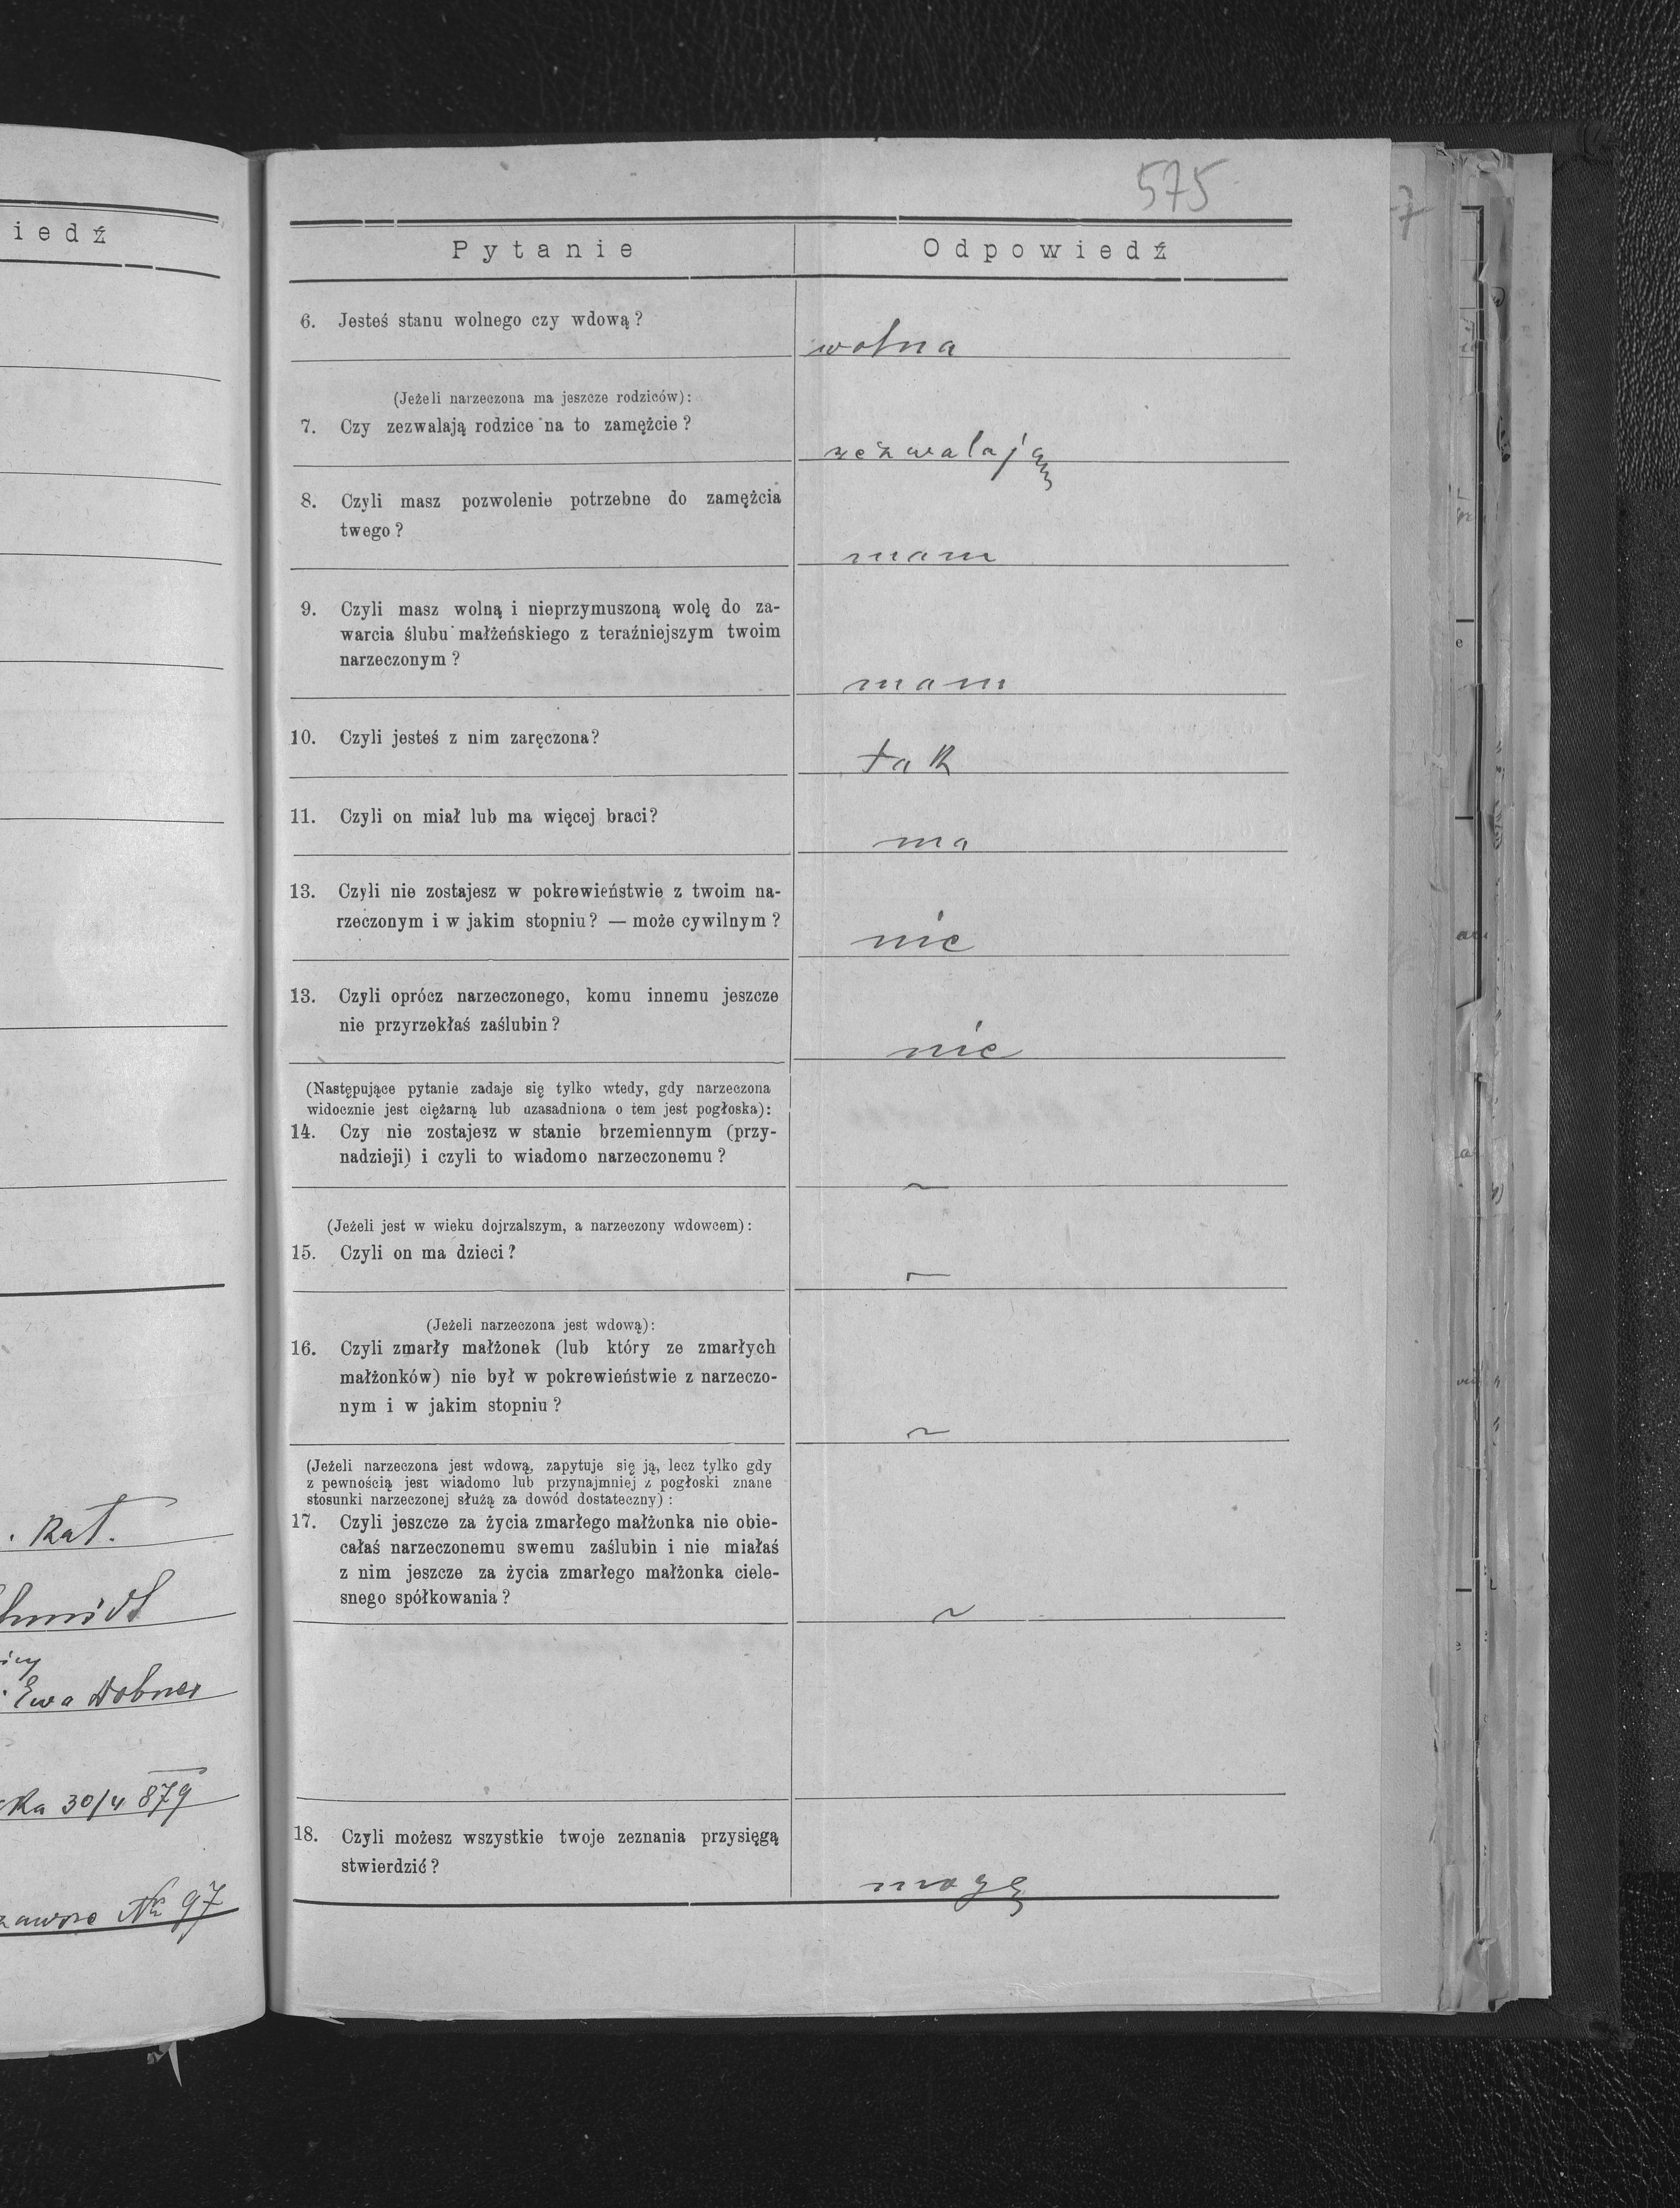 575
iedź
Pytanie Odpowiedź
6. Jesteś stanu wolnego czy wdową?
wolna
(Jeżeli narzeczona ma jeszcze rodziców):
7. Czy zezwalają rodzice na to zamężcie?
zezwalają
8. Czyli masz pozwolenie potrzebne do zamężcia
twego?
mam
9. Czyli masz wolną i nieprzymuszoną wolę do za-
warcia ślubu małżeńskiego z teraźniejszym twoim
narzeczonym?
mam
10. Czyli jesteś z nim zaręczona?
tak
11. Czyli on miał lub ma więcej braci?
ma
13. Czyli nie zostajesz w pokrewieństwie z twoim na-
rzeczonym i w jakim stopniu? — może cywilnym?
nie
13. Czyli oprócz narzeczonego, komu innemu jeszcze
nie przyrzekłaś zaślubin?
nie
(Następujące pytanie zadaje się tylko wtedy, gdy narzeczona
widocznie jest ciężarną lub uzasadniona o tem jest pogłoska):
14. Czy nie zostajesz w stanie brzemiennym (przy-
nadzieji) i czyli to wiadomo narzeczonemu?
~
(Jeżeli jest w wieku dojrzalszym, a narzeczony wdowcem):
15. Czyli on ma dzieci?
~
(Jeżeli narzeczona jest wdową):
16. Czyli zmarły małżonek (lub który ze zmarłych
małżonków) nie był w pokrewieństwie z narzeczo-
nym i w jakim stopniu?
~
(Jeżeli narzeczona jest wdową, zapytuje się ją, lecz tylko gdy
z pewnością jest wiadomo lub przynajmniej z pogłoski znane
stosunki narzeczonej służą za dowód dostateczny):
17. Czyli jeszcze za życia zmarłego małżonka nie obie-
całaś narzeczonemu swemu zaślubin i nie miałaś
z nim jeszcze za życia zmarłego małżonka ciele-
snego spółkowania?
~
18. Czyli możesz wszystkie twoje zeznania przysięgą
stwierdzić?
mogę
. Kat.
hmidt
Ewa Dobner
ka 30/4 879
№ 97